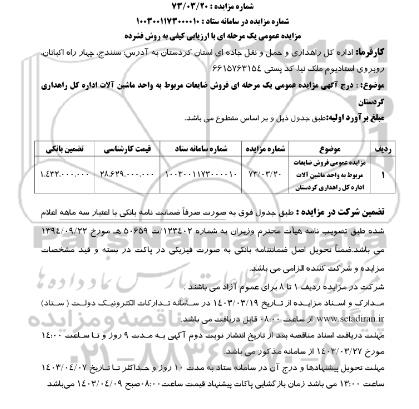 شماره مزایده : ۷۳/۰۳/۲۰
شماره مزایده در سامانه ستاد : ۱۰۰۳۰۰۱۱۷۳۰۰۰۰۱۰
مزایده عمومی یک مرحله ای با ارزیابی کیفی به روش فشرده
کارفرما: اداره کل راهداری و حمل و نقل جاده ای استان کردستان به آدرس: سنندج، چهار راه اکباتان،
روبروی استادیوم ملک نیا، کد پستی ۶۶۱۵۷۶۳۱۵۴
موضوع: : درج آگهی مزایده عمومی یک مرحله ای فروش ضایعات مربوط به واحد ماشین آلات اداره کل راهداری
کردستان
مبلغ برآورد اولیه:طبق جدول ذیل و بر اساس مقطوع می باشد.
ردیف موضوع شماره مزایده شماره سامانه ستاد قیمت کارشناسی تضمین بانکی
۱ مزایده عمومی فروش ضایعات مربوط به واحد ماشین آلات اداره کل راهداری کردستان ۷۳/۰۳/۲۰ ۱۰۰۳۰۰۱۱۷۳۰۰۰۰۱۰ ۲۸.۶۲۹.۰۰۰.۰۰۰ ۱.۴۳۲.۰۰۰.۰۰۰
تضمین شرکت در مزایده : طبق جدول فوق به صورت صرفاً ضمانت نامه بانکی با اعتبار سه ماهه اعلام
شده طبق تصویب نامه هیأت محترم وزیران به شماره ۱۲۳۴۰۲/ت ۵۰۶۵۹ هـ مورخ ۱۳۹۴/۰۹/۲۲
می باشد.ضمناً تحویل اصل ضمانتنامه بانکی به صورت فیزیکی در پاکت در بسته و قید مشخصات
مزایده و شرکت کننده الزامی می باشد.
شرکت در مزایده ردیف ۱ تا ۸ برای عموم آزاد می باشند.
مدارک و اسناد مزایده از تاریخ ۱۴۰۳/۰۳/۱۹ در سامانه تدارکات الکترونیک دولت ( ستاد)
www.setadiran.ir از ساعت ۰۸:۰۰ قابل دریافت می باشد.
مهلت دریافت اسناد مناقصه بعد از تاریخ انتشار نوبت دوم آگهی به مدت ۹ روز و تا ساعت ۱۴:۰۰
مورخ ۱۴۰۳/۰۳/۲۷ از سامانه مذکور می باشد.
مهلت تحویل پیشنهادها و درج آن در سامانه ستاد به مدت ۱۰ روز و حداکثر تا تاریخ ۱۴۰۳/۰۴/۰۷
ساعت ۱۳:۰۰ می باشد زمان بازگشایی پاکات پیشنهاد قیمت ساعت ۰۸:۰۰صبح ۱۴۰۳/۰۴/۰۹ می‌باشد.